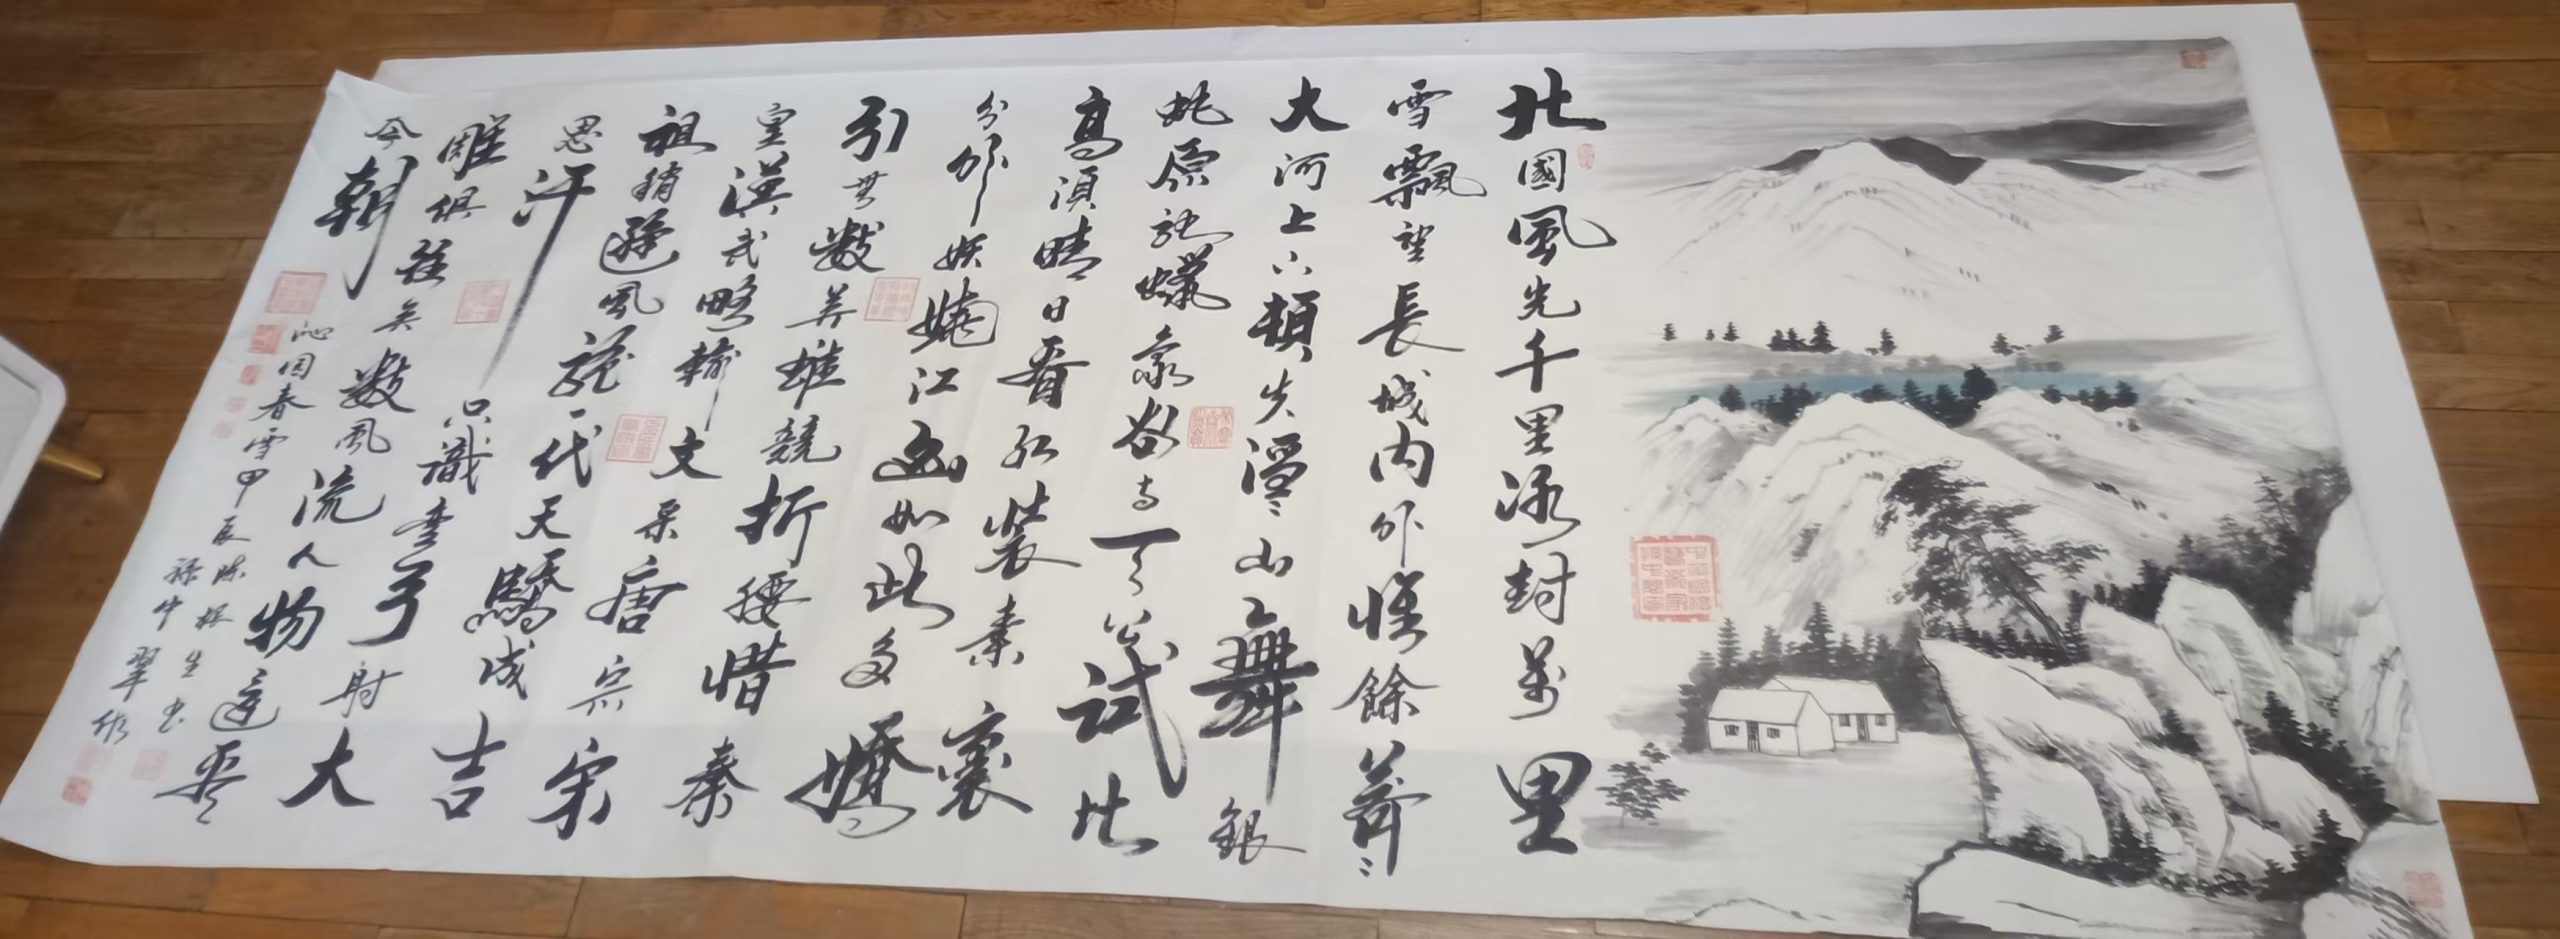 北國風光千里冰封萬里
雪飄望長城內外惟餘莽々
大河上下頓失滔々山舞銀
蛇原馳蠟象欲与天公試比
高須晴日看紅裝素裹
分外妖嬈江山如此多嬌
引無數英雄競折腰惜秦
皇漢武略輸文采唐宗宋
祖稍遜風騷一代天驕成吉
思汗只識彎弓射大
雕俱往矣數風流人物還看
今朝
沁园春雪甲辰陈根生书
翠作